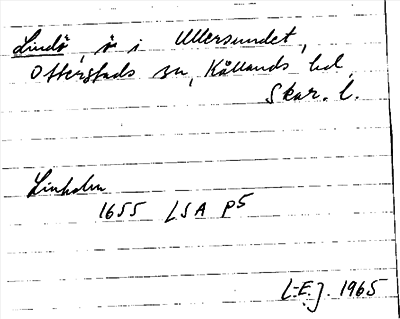 Lindö, ö i Ullersundet,
Otterstads sn, Kållands hd,
Skar. l.
Linholm
1655 LSA P5
L-E.J. 1965